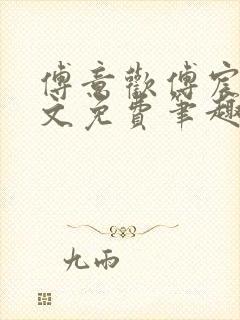 傅意歡傅宸
文免費筆趣
九雨